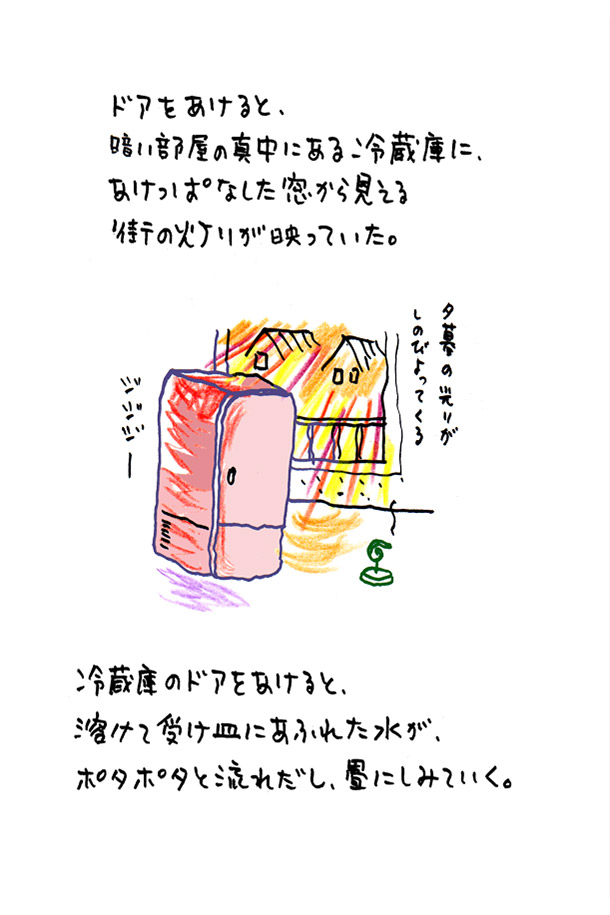 ドアをあけると、
暗い部屋の真中にある冷蔵庫に、
あけっぱなした窓から見える
街の灯りが映っていた。
夕暮の光りが
しのびよってくる
ジジジー
冷蔵庫のドアをあけると、
溶けて受け皿にあふれた水が、
ポタポタと流れだし、畳にしみていく。